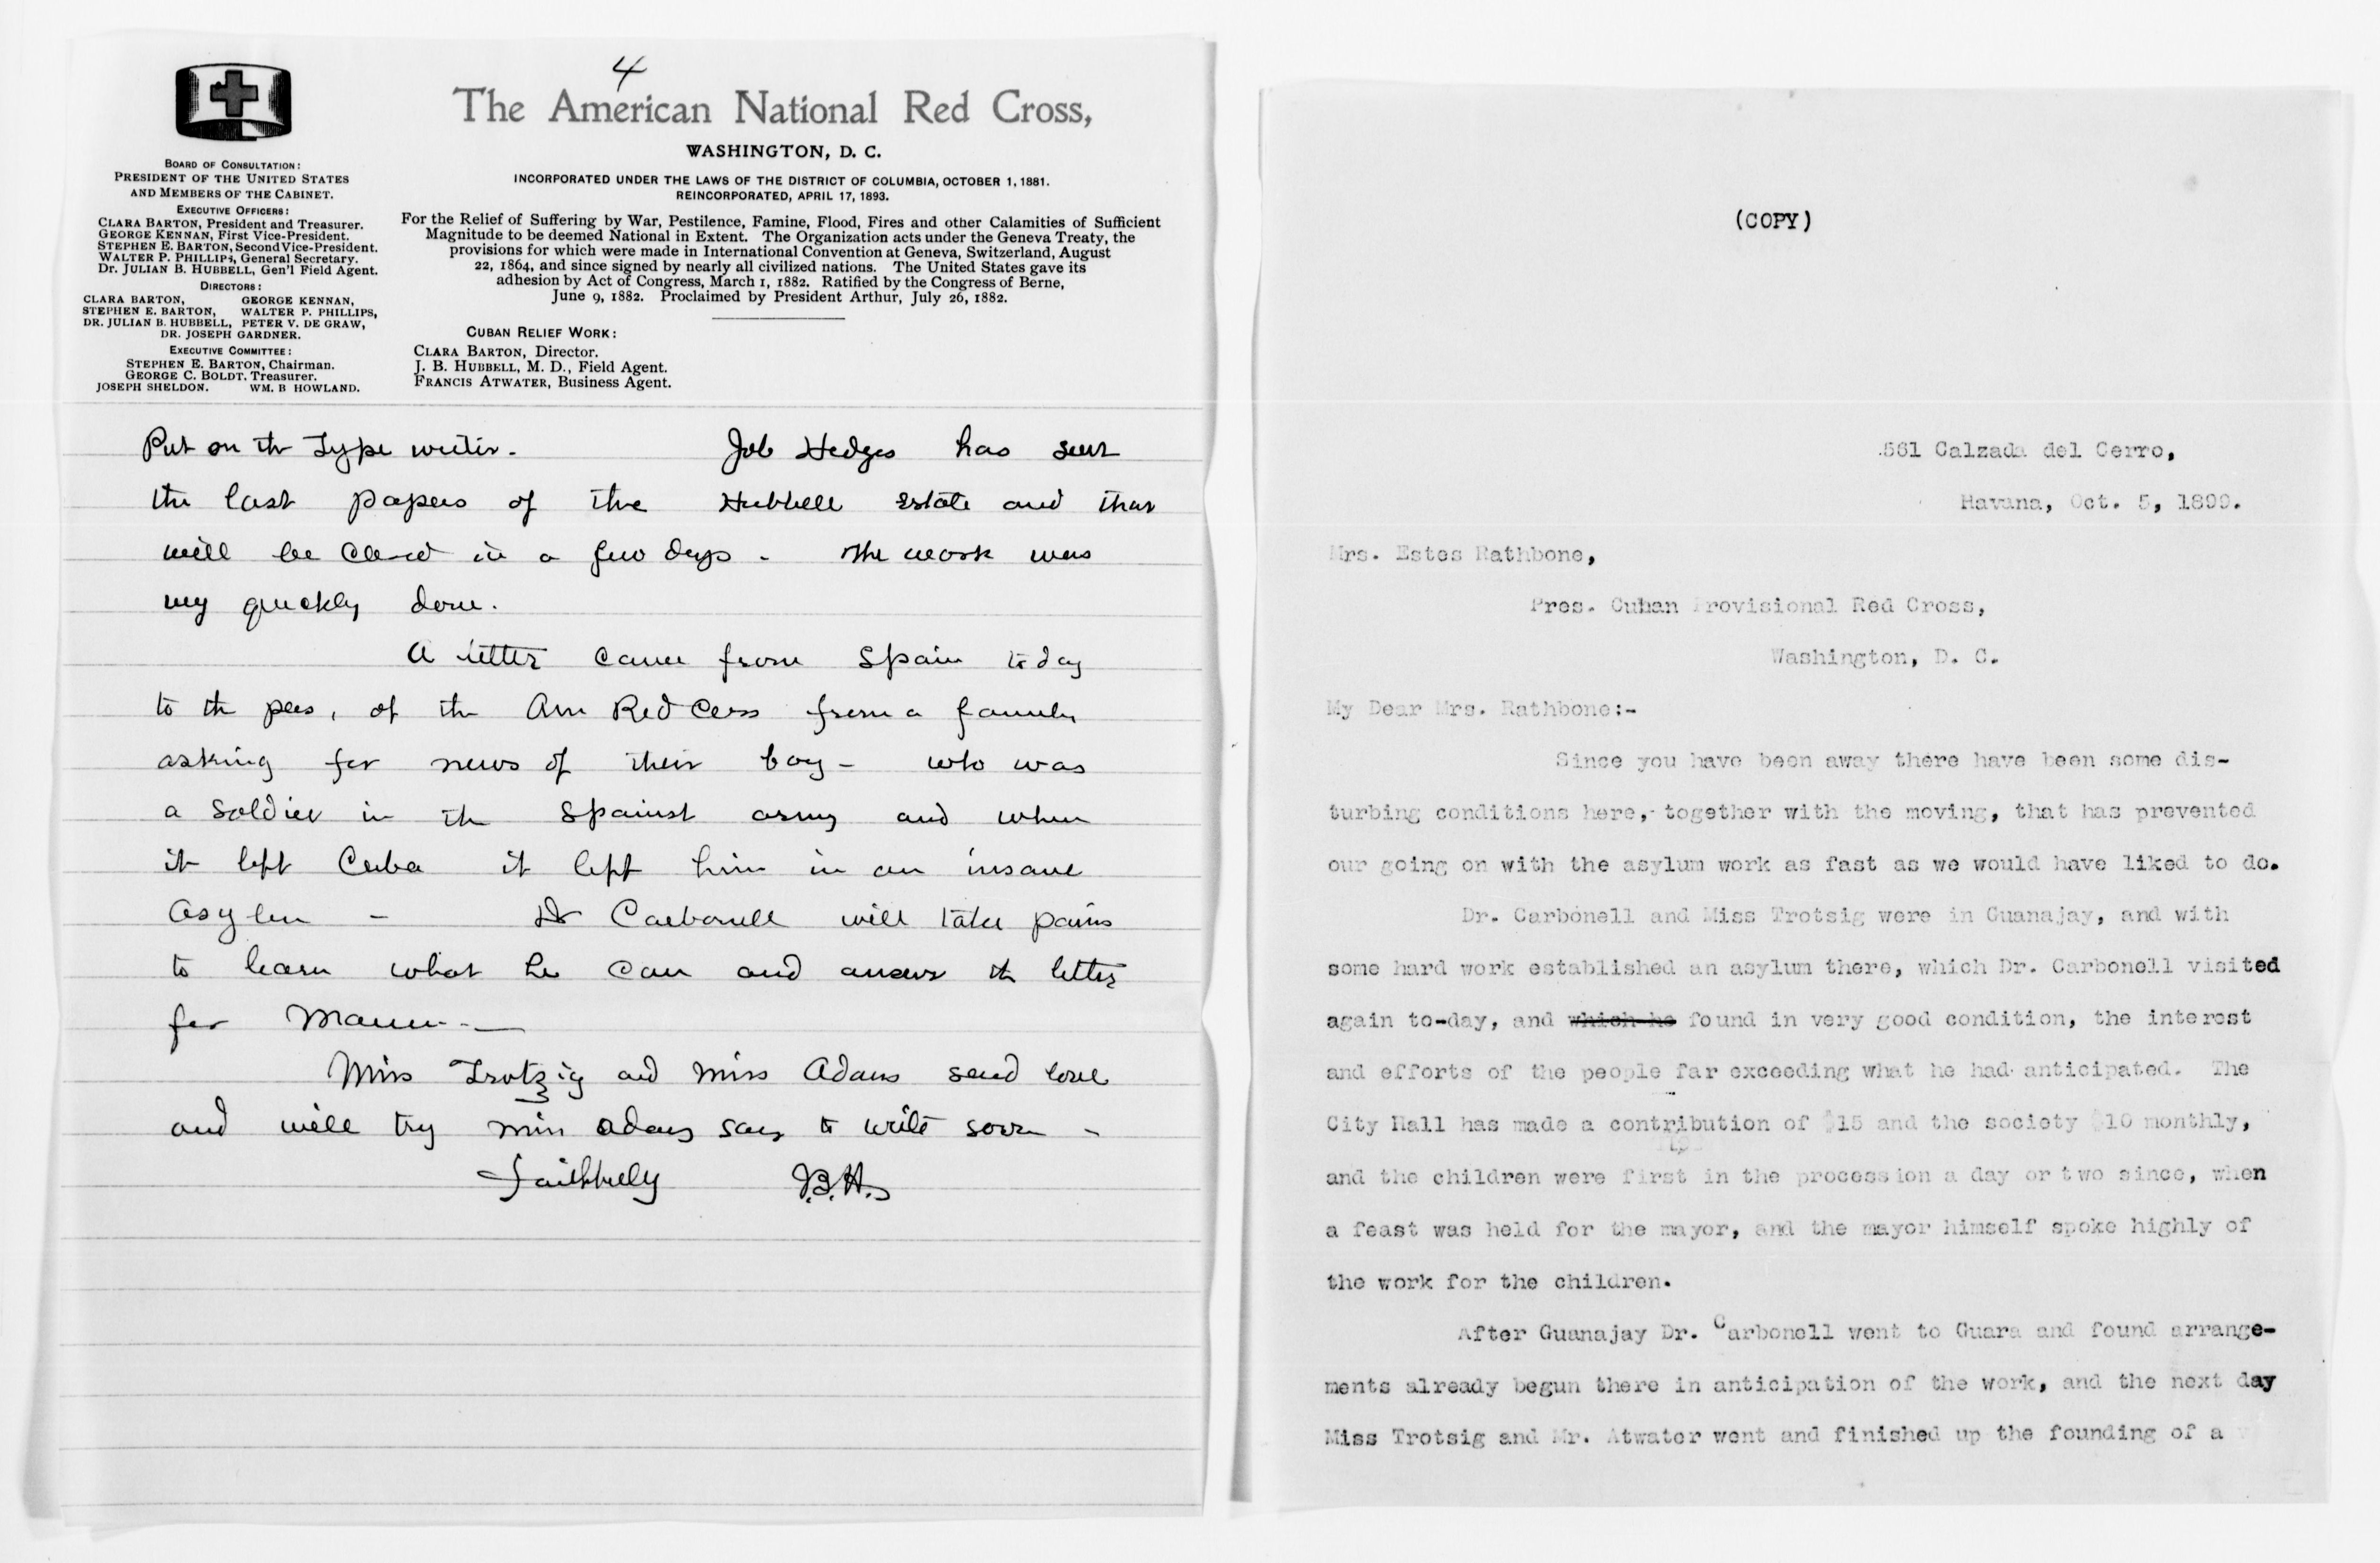 4
The American National Red Cross,
WASHINGTON, D. C.
INCORPORATED UNDER THE LAWS OF THE DISTRICT OF COLUMBIA, OCTOBER 1, 1881.
REINCORPORATED, APRIL 17, 1893.
For the Relief of Suffering by War, Pestilence, Famine, Flood, Fires and other Calamities of Sufficient
Magnitude to be deemed National in Extent. The Organization acts under the Geneva Treaty, the
provisions for which were made in International Convention at Geneva, Switzerland, August
22, 1864, and since signed by nearly all civilized nations. The United States gave its
adhesion by Act of Congress, March 1, 1882. Ratified by the Congress of Berne,
June 9, 1882. Proclaimed by President Arthur, July 26, 1882.
BOARD OF CONSULTATION:
PRESIDENT OF THE UNITED STATES
AND MEMBERS OF THE CABINET.
EXECUTIVE OFFICERS:
CLARA BARTON, President and Treasurer.
GEORGE KENNAN, First Vice-President.
STEPHEN E. BARTON, Second Vice-President.
WALTER P. PHILLIPS, General Secretary.
Dr. JULIAN B. HUBBELL, Gen'l Field Agent.
DIRECTORS:
CLARA BARTON, GEORGE KENNAN,
STEPHEN E. BARTON, WALTER P. PHILLIPS,
DR. JULIAN B. HUBBELL, PETER V. DE GRAW,
DR. JOSEPH GARDNER.
EXECUTIVE COMMITTEE:
STEPHEN E. BARTON, Chairman.
GEORGE C. BOLDT, Treasurer.
JOSEPH SHELDON. WM. B HOWLAND.
CUBAN RELIEF WORK:
CLARA BARTON, Director.
J. B. HUBBELL, M. D., Field Agent.
FRANCIS ATWATER, Business Agent.
Put on the Type writer. Job Hedges has sent
the last papers of the Hubbell Estate and that
will be closed in a few days - The work was
very quickly done.
A letter came from Spain today
to the pres, of the Am Red Cross from a family
asking for news of their boy - who was
a soldier in the Spainst army and when
it left Cuba it left him in an insane
asylum - Dr Carbonell will take pains
to learn what he can and answer the letter
for
Miss Trotzig and Miss Adams send love
and will try miss adams says to write soon -
Faithfully J.B.H.
(COPY)
561 Calzada del Cerro,
Havana, Oct. 5, 1899.
Mrs. Estes Rathbone,
Pres. Cuban Provisional Red Cross,
Washington, D. C.
My Dear Mrs. Rathbone:-
Since you have been away there have been some dis-
turbing conditions here,- together with the moving, that has prevented
our going on with the asylum work as fast as we would have liked to do.
Dr. Carbonell and Miss Trotsig were in Guanajay, and with
some hard work established an asylum there, which Dr. Carbonell visited
again to-day, and which he found in very good condition, the interest
and efforts of the people far exceeding what he had anticipated. The
City Hall has made a contribution of $15 and the society $10 monthly,
and the children were first in the procession a day or two since, when
a feast was held for the mayor, and the mayor himself spoke highly of
the work for the children.
After Guanajay Dr. Carbonell went to Guara and found arrange-
ments already begun there in anticipation of the work, and the next day
Miss Trotsig and Mr. Atwater went and finished up the founding of a